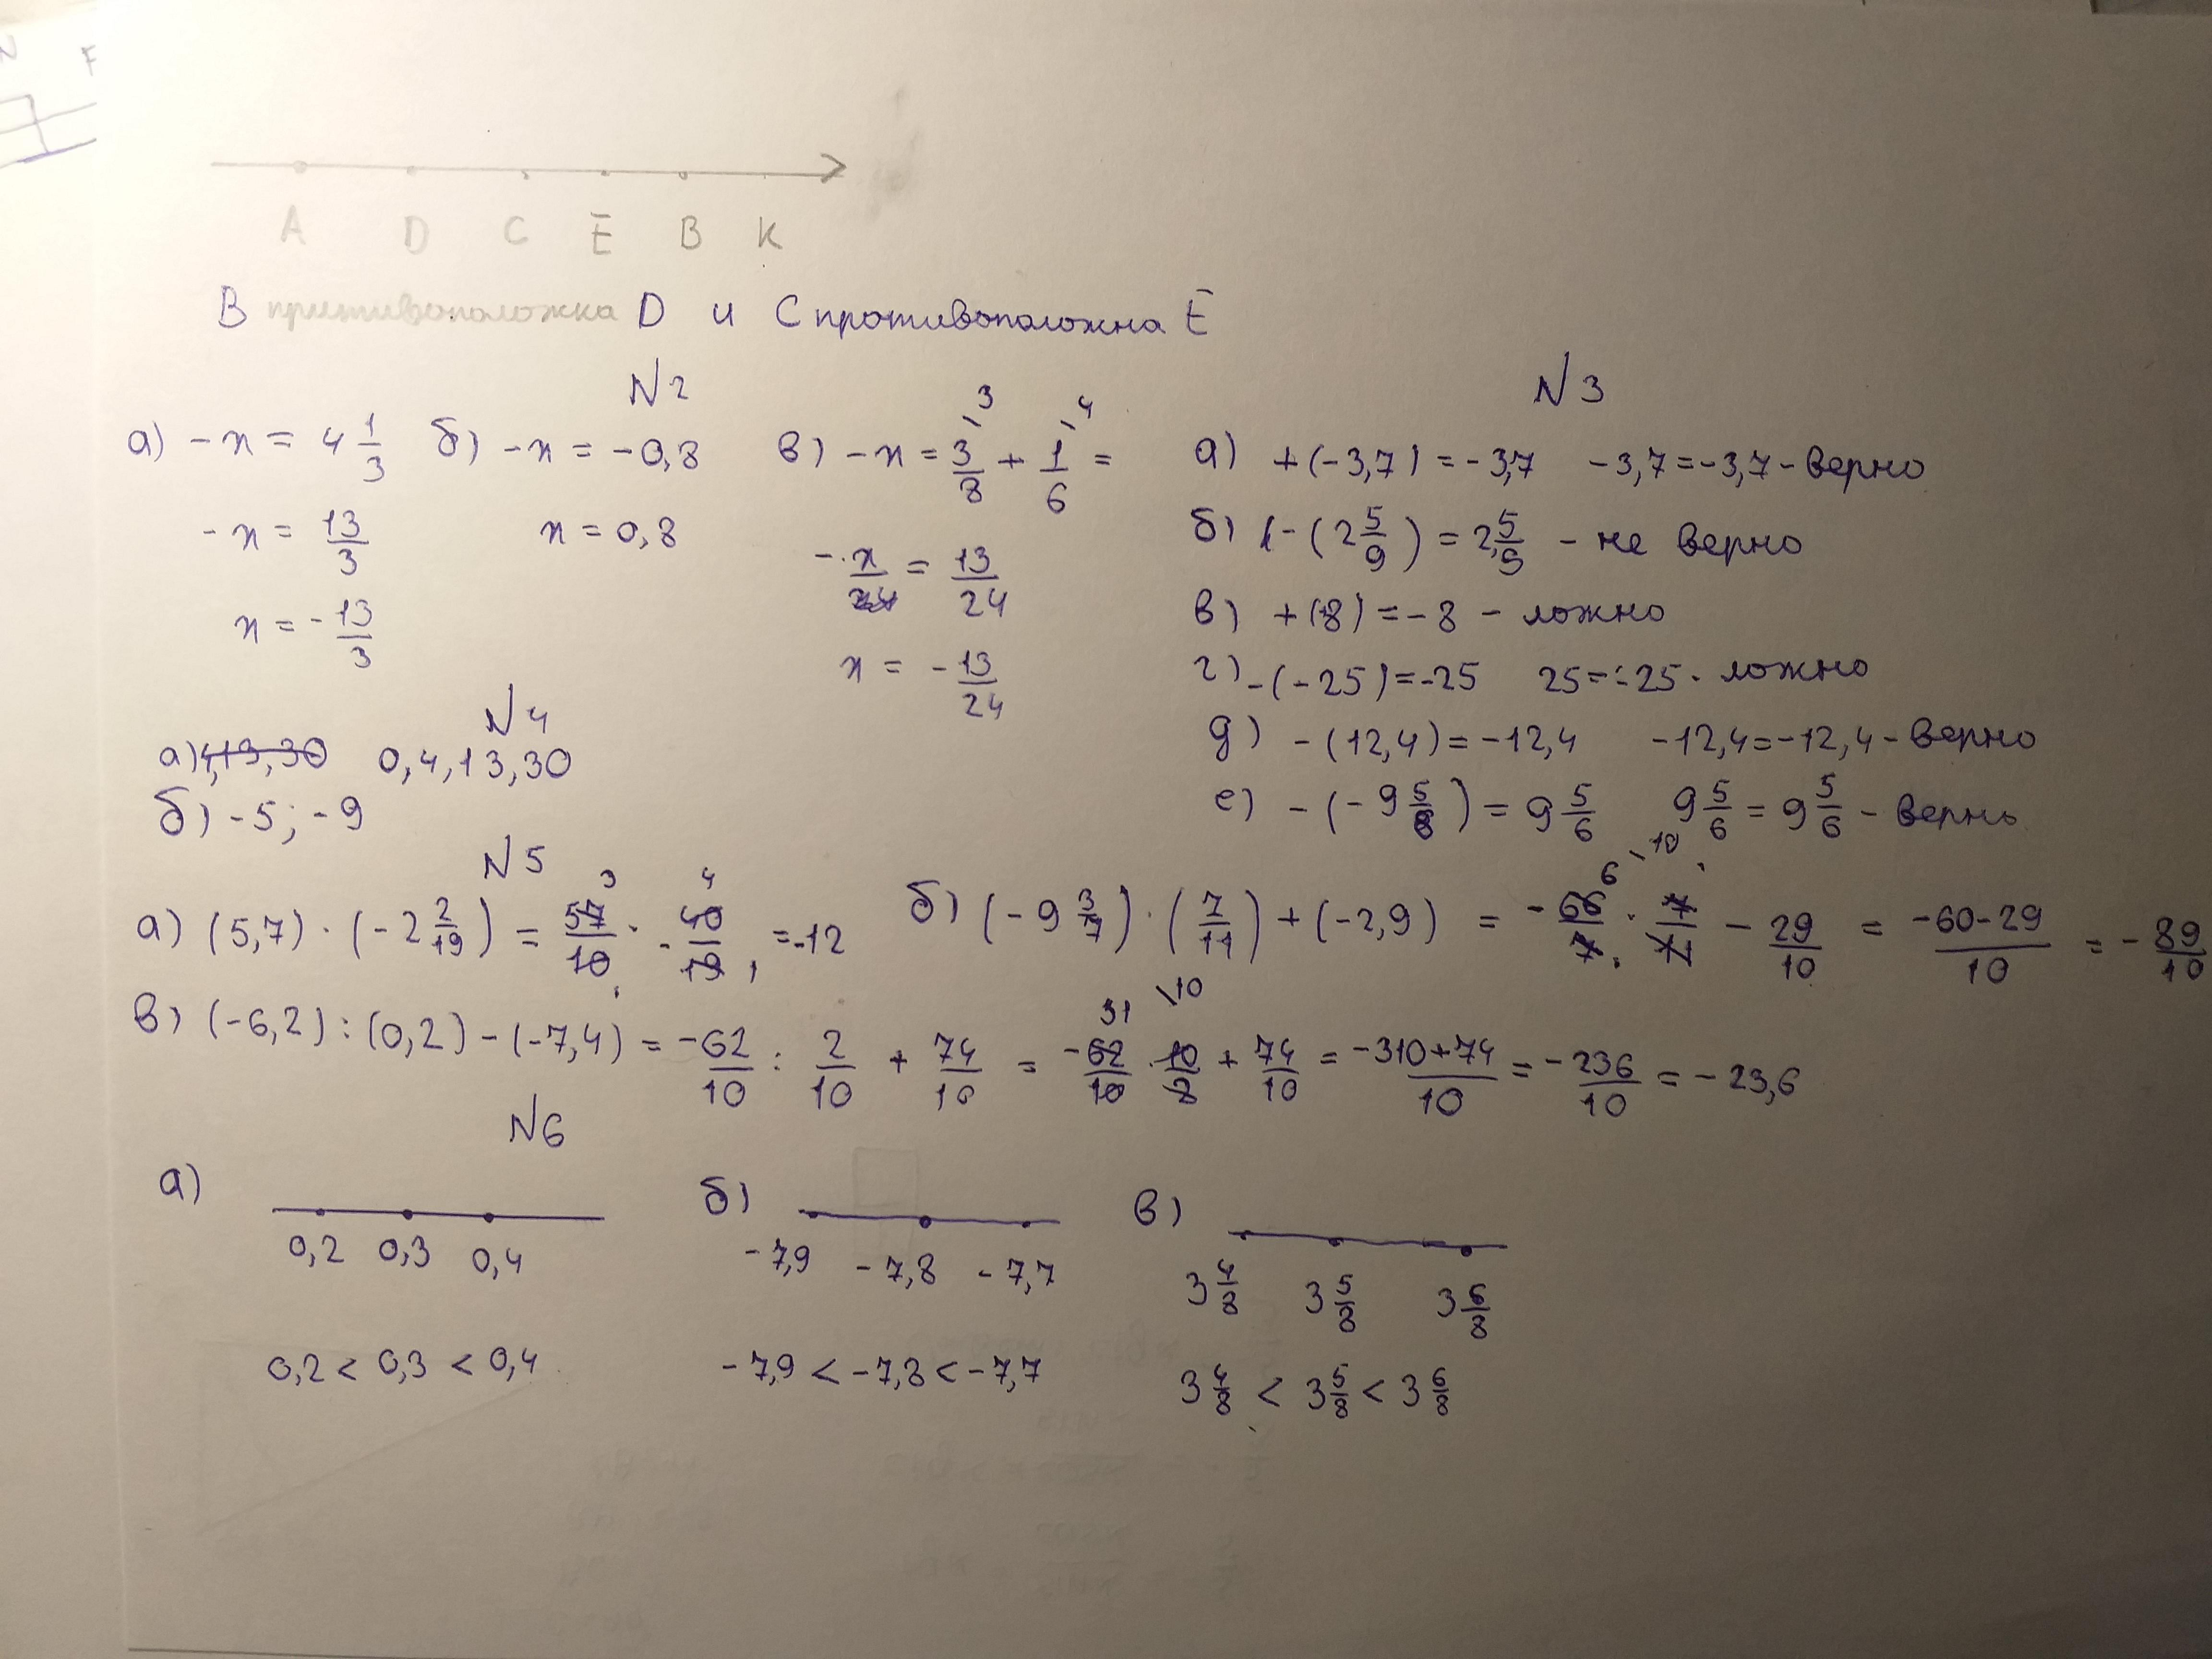 N F
A D C E B K
В противоположна D и С противоположна E
N2
а) -x = 4 1/3 б) -x = -0,8 в) -x = 3/8 \3 + 1/6 \4 =
-x = 13/3 x = 0,8 -x/24 = 13/24
x = -13/3 x = -13/24
N3
а) +(-3,7) = -3,7 -3,7 = -3,7 - верно
б) -(2 5/9) = 2 5/9 - не верно
в) +(8) = -8 - ложно
г) -(-25) = -25 25 = -25 - ложно
д) -(12,4) = -12,4 -12,4 = -12,4 - верно
е) -(-9 5/6) = 9 5/6 9 5/6 = 9 5/6 - верно
N4
а) 4,13,30 0,4,13,30
б) -5; -9
N5
а) (5,7) · (-2 2/19) = 57/10 · - 40/19 = -12 б) (-9 3/7) · (7/11) + (-2,9) = -66/7 · 7/11 - 29/10 = -60-29/10 = -89/10
в) (-6,2) : (0,2) - (-7,4) = -62/10 : 2/10 + 74/10 = -62/10 · 10/2 \10 + 74/10 = -310+74/10 = -236/10 = -23,6
N6
а) б) в)
0,2 0,3 0,4 -7,9 -7,8 -7,7 3 4/8 3 5/8 3 6/8
0,2 < 0,3 < 0,4 -7,9 < -7,8 < -7,7 3 4/8 < 3 5/8 < 3 6/8